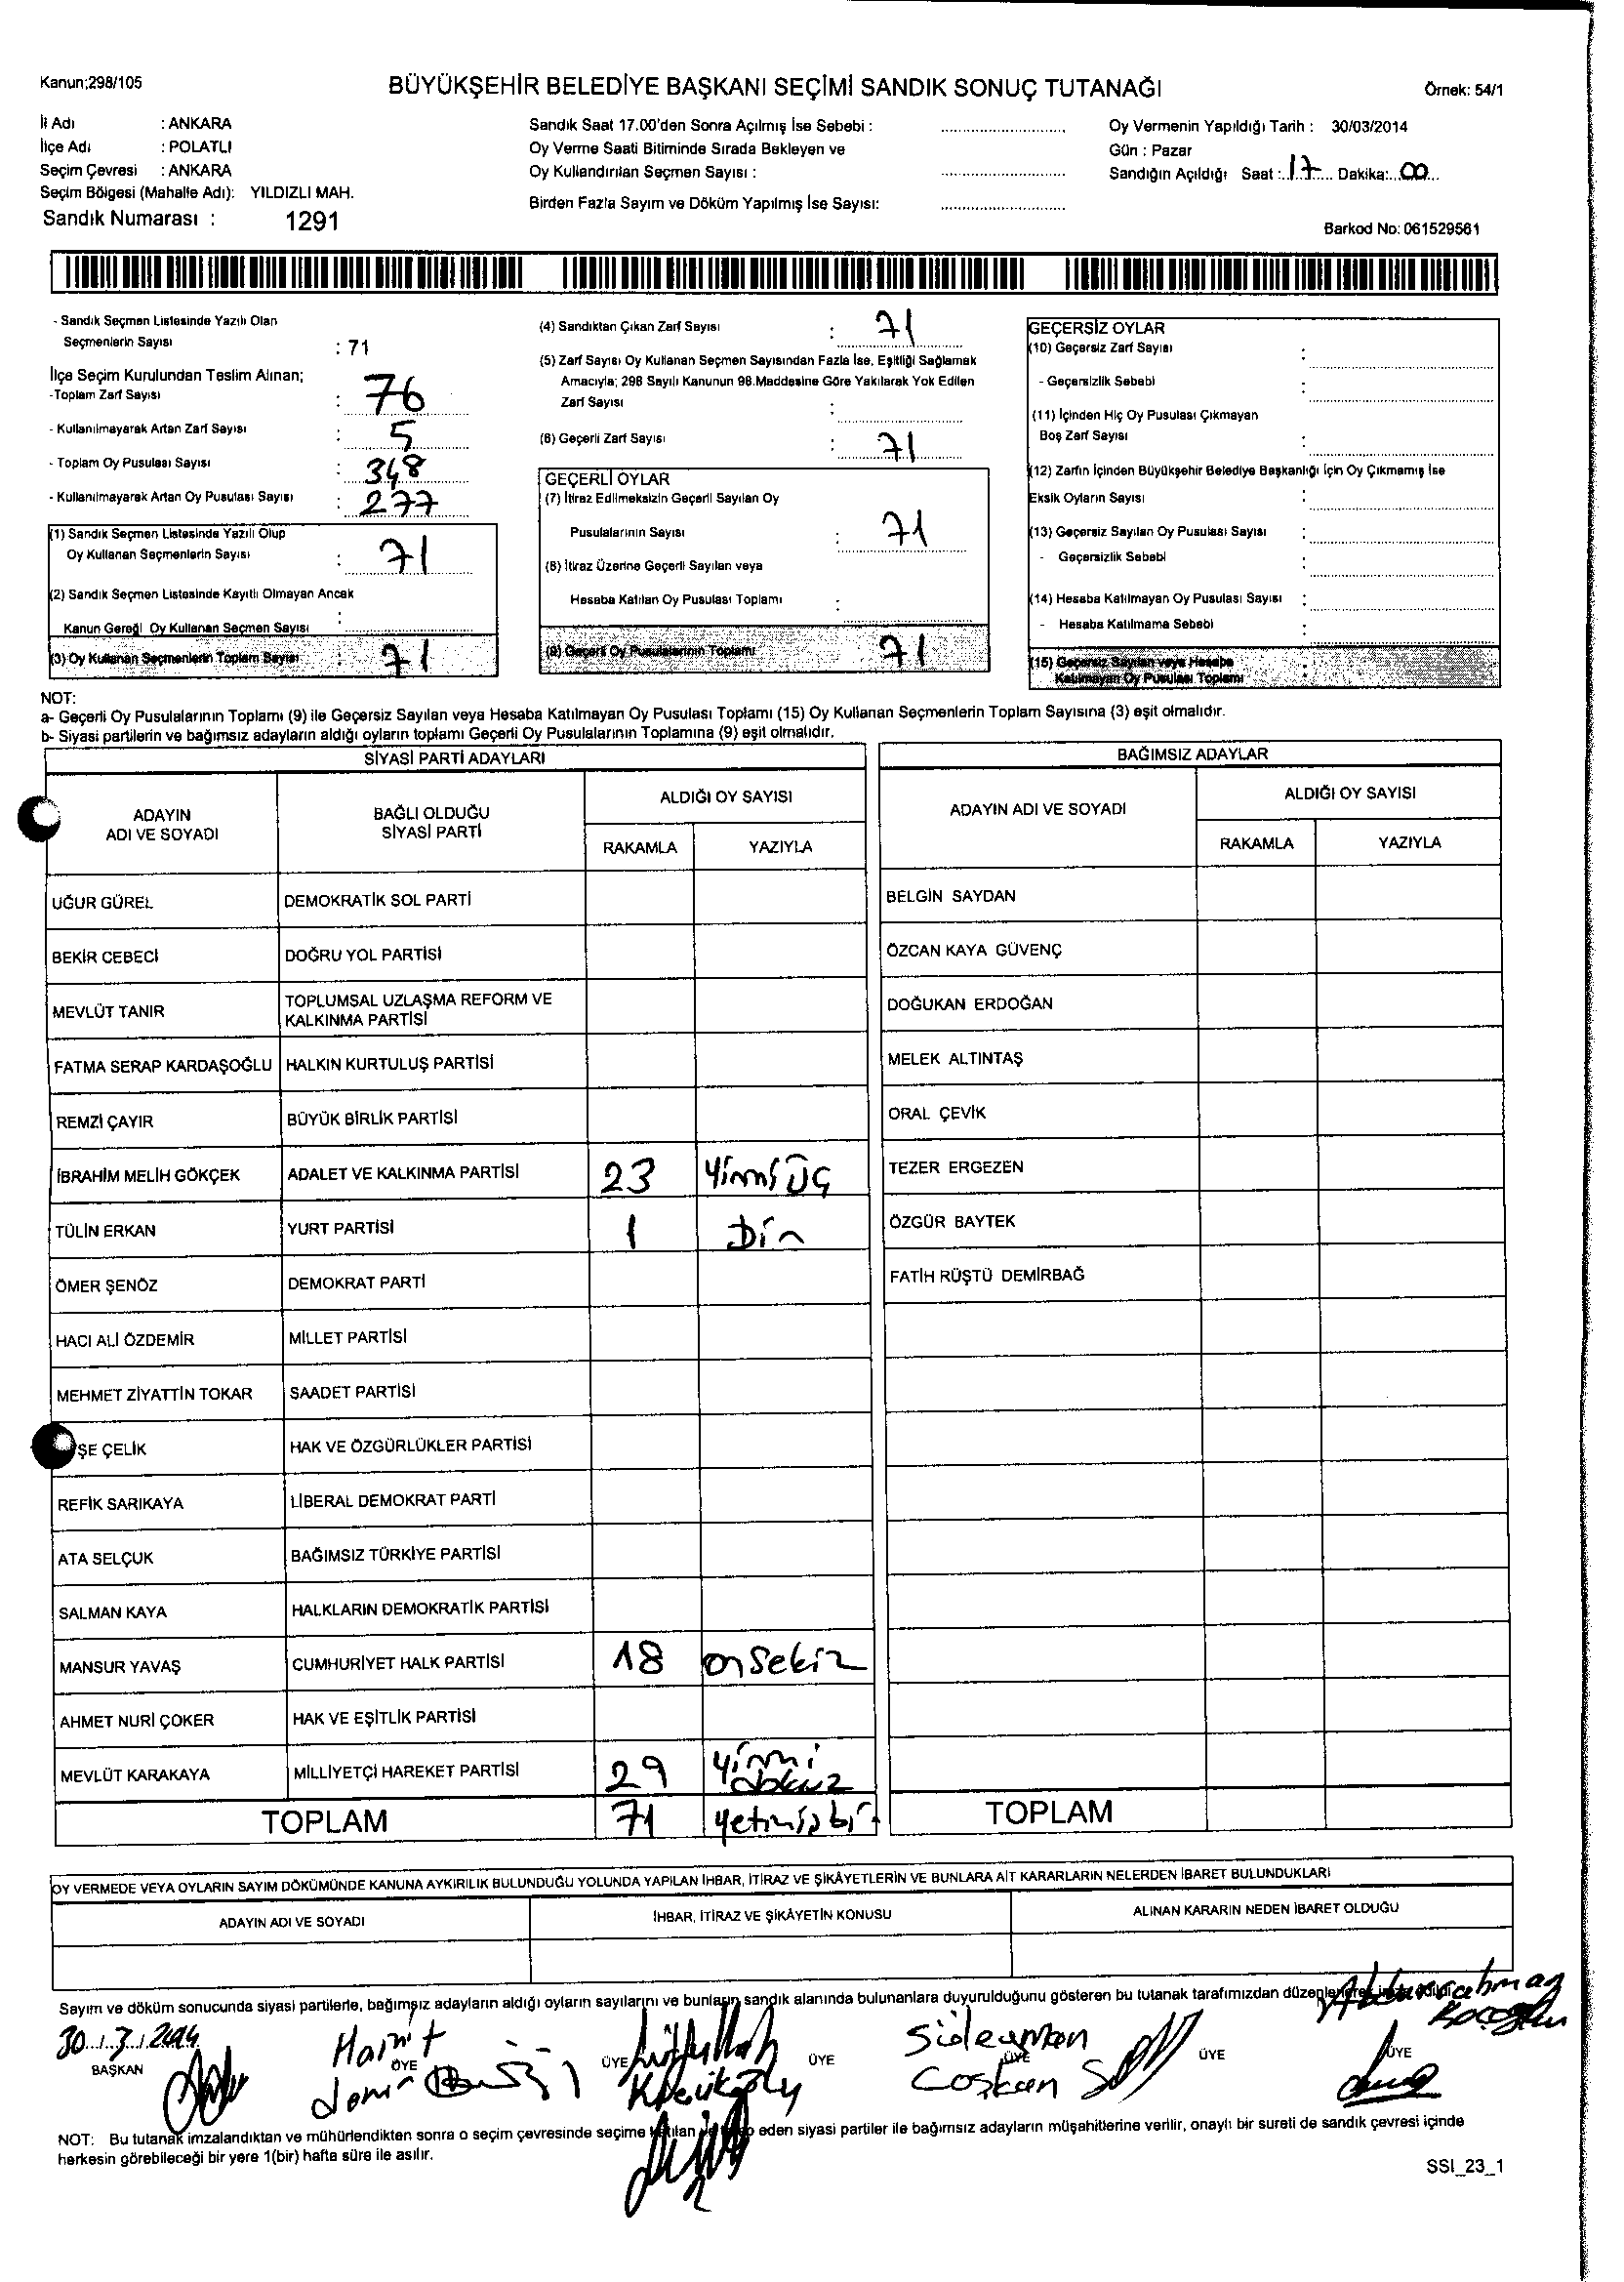 Kanun;298/105
BÜYÜKŞEHİR BELEDİYE BAŞKANI SEÇİMİ SANDIK SONUÇ TUTANAĞI
Örnek: 54/1
İl Adı : ANKARA
İlçe Adı : POLATLI
Seçim Çevresi : ANKARA
Seçim Bölgesi (Mahalle Adı): YILDIZLI MAH.
Sandık Numarası : 1291
Sandık Saat 17.00'den Sonra Açılmış İse Sebebi :
Oy Verme Saati Bitiminde Sırada Bekleyen ve
Oy Kullandırılan Seçmen Sayısı :
Birden Fazla Sayım ve Döküm Yapılmış İse Sayısı:
Oy Vermenin Yapıldığı Tarih : 30/03/2014
Gün : Pazar
Sandığın Açıldığı Saat : 17 Dakika: 00
Barkod No: 061529561
- Sandık Seçmen Listesinde Yazılı Olan
Seçmenlerin Sayısı : 71
İlçe Seçim Kurulundan Teslim Alınan;
-Toplam Zarf Sayısı : 76
- Kullanılmayarak Artan Zarf Sayısı : 5
- Toplam Oy Pusulası Sayısı : 348
- Kullanılmayarak Artan Oy Pusulası Sayısı : 277
(1) Sandık Seçmen Listesinde Yazılı Olup
Oy Kullanan Seçmenlerin Sayısı : 71
(2) Sandık Seçmen Listesinde Kayıtlı Olmayan Ancak
Kanun Gereği Oy Kullanan Seçmen Sayısı :
(3) Oy Kullanan Seçmenlerin Toplam Sayısı : 71
(4) Sandıktan Çıkan Zarf Sayısı : 71
(5) Zarf Sayısı Oy Kullanan Seçmen Sayısından Fazla İse, Eşitliği Sağlamak
Amacıyla; 298 Sayılı Kanunun 98.Maddesine Göre Yakılarak Yok Edilen
Zarf Sayısı :
(6) Geçerli Zarf Sayısı : 71
GEÇERLİ OYLAR
(7) İtiraz Edilmeksizin Geçerli Sayılan Oy
Pusulalarının Sayısı : 71
(8) İtiraz Üzerine Geçerli Sayılan veya
Hesaba Katılan Oy Pusulası Toplamı :
(9) Geçerli Oy Pusulalarının Toplamı 71
GEÇERSİZ OYLAR
(10) Geçersiz Zarf Sayısı :
- Geçersizlik Sebebi :
(11) İçinden Hiç Oy Pusulası Çıkmayan
Boş Zarf Sayısı :
(12) Zarfın İçinden Büyükşehir Belediye Başkanlığı İçin Oy Çıkmamış İse
Eksik Oyların Sayısı :
(13) Geçersiz Sayılan Oy Pusulası Sayısı :
- Geçersizlik Sebebi :
(14) Hesaba Katılmayan Oy Pusulası Sayısı :
- Hesaba Katılmama Sebebi :
(15) Geçersiz Sayılan veya Hesaba
Katılmayan Oy Pusulası Toplamı :
NOT:
a- Geçerli Oy Pusulalarının Toplamı (9) ile Geçersiz Sayılan veya Hesaba Katılmayan Oy Pusulası Toplamı (15) Oy Kullanan Seçmenlerin Toplam Sayısına (3) eşit olmalıdır.
b- Siyasi partilerin ve bağımsız adayların aldığı oyların toplamı Geçerli Oy Pusulalarının Toplamına (9) eşit olmalıdır.
SİYASİ PARTİ ADAYLARI
ADAYIN ADI VE SOYADI BAĞLI OLDUĞU SİYASİ PARTİ ALDIĞI OY SAYISI
RAKAMLA YAZIYLA
UĞUR GÜREL DEMOKRATİK SOL PARTİ
BEKİR CEBECİ DOĞRU YOL PARTİSİ
MEVLÜT TANIR TOPLUMSAL UZLAŞMA REFORM VE KALKINMA PARTİSİ
FATMA SERAP KARDAŞOĞLU HALKIN KURTULUŞ PARTİSİ
REMZİ ÇAYIR BÜYÜK BİRLİK PARTİSİ
İBRAHİM MELİH GÖKÇEK ADALET VE KALKINMA PARTİSİ 23 Yirmi üç
TÜLİN ERKAN YURT PARTİSİ 1 Bir
ÖMER ŞENÖZ DEMOKRAT PARTİ
HACI ALİ ÖZDEMİR MİLLET PARTİSİ
MEHMET ZİYATTİN TOKAR SAADET PARTİSİ
ŞE ÇELİK HAK VE ÖZGÜRLÜKLER PARTİSİ
REFİK SARIKAYA LİBERAL DEMOKRAT PARTİ
ATA SELÇUK BAĞIMSIZ TÜRKİYE PARTİSİ
SALMAN KAYA HALKLARIN DEMOKRATİK PARTİSİ
MANSUR YAVAŞ CUMHURİYET HALK PARTİSİ 18 onsekiz
AHMET NURİ ÇOKER HAK VE EŞİTLİK PARTİSİ
MEVLÜT KARAKAYA MİLLİYETÇİ HAREKET PARTİSİ 29 Yirmi dokuz
TOPLAM 71 Yetmişbir
BAĞIMSIZ ADAYLAR
ADAYIN ADI VE SOYADI ALDIĞI OY SAYISI
RAKAMLA YAZIYLA
BELGİN SAYDAN
ÖZCAN KAYA GÜVENÇ
DOĞUKAN ERDOĞAN
MELEK ALTINTAŞ
ORAL ÇEVİK
TEZER ERGEZEN
ÖZGÜR BAYTEK
FATİH RÜŞTÜ DEMİRBAĞ
TOPLAM
OY VERMEDE VEYA OYLARIN SAYIM DÖKÜMÜNDE KANUNA AYKIRILIK BULUNDUĞU YOLUNDA YAPILAN İHBAR, İTİRAZ VE ŞİKÂYETLERİN VE BUNLARA AİT KARARLARIN NELERDEN İBARET BULUNDUKLARI
ADAYIN ADI VE SOYADI İHBAR, İTİRAZ VE ŞİKÂYETİN KONUSU ALINAN KARARIN NEDEN İBARET OLDUĞU
Sayım ve döküm sonucunda siyasi partilerle, bağımsız adayların aldığı oyların sayılarını ve bunların sandık alanında bulunanlara duyurulduğunu gösteren bu tutanak tarafımızdan düzenlenerek imza edildi.
30.3.2014
BAŞKAN
Hamit
ÜYE
Demir
ÜYE Lütfullah
ÜYE
Süleyman
ÜYE
Coşkun
ÜYE
Abdurrahman
ÜYE
NOT: Bu tutanak imzalandıktan ve mühürlendikten sonra o seçim çevresinde seçime katılan ve talep eden siyasi partiler ile bağımsız adayların müşahitlerine verilir, onaylı bir sureti de sandık çevresi içinde
herkesin görebileceği bir yere 1(bir) hafta süre ile asılır.
SSI_23_1